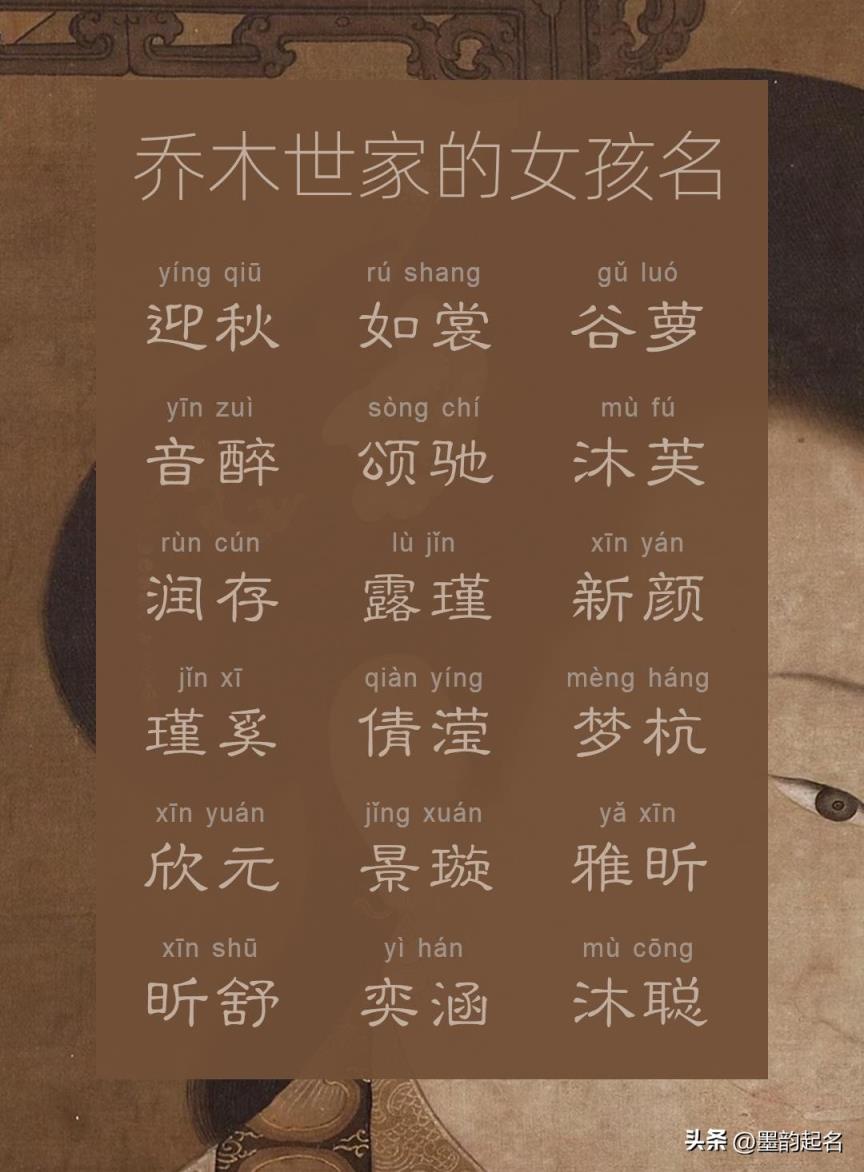 乔木世家的女孩名
yíng qiū rú shang gǔ luó
迎秋 如裳 谷萝
yīn zuì sòng chí mù fú
音醉 颂驰 沐芙
rùn cún lù jǐn xīn yán
润存 露瑾 新颜
jǐn xī qiàn yíng mèng háng
瑾奚 倩滢 梦杭
xīn yuán jǐng xuán yǎ xīn
欣元 景璇 雅昕
xīn shū yì hán mù cōng
昕舒 奕涵 沐聪
头条 @墨韵起名